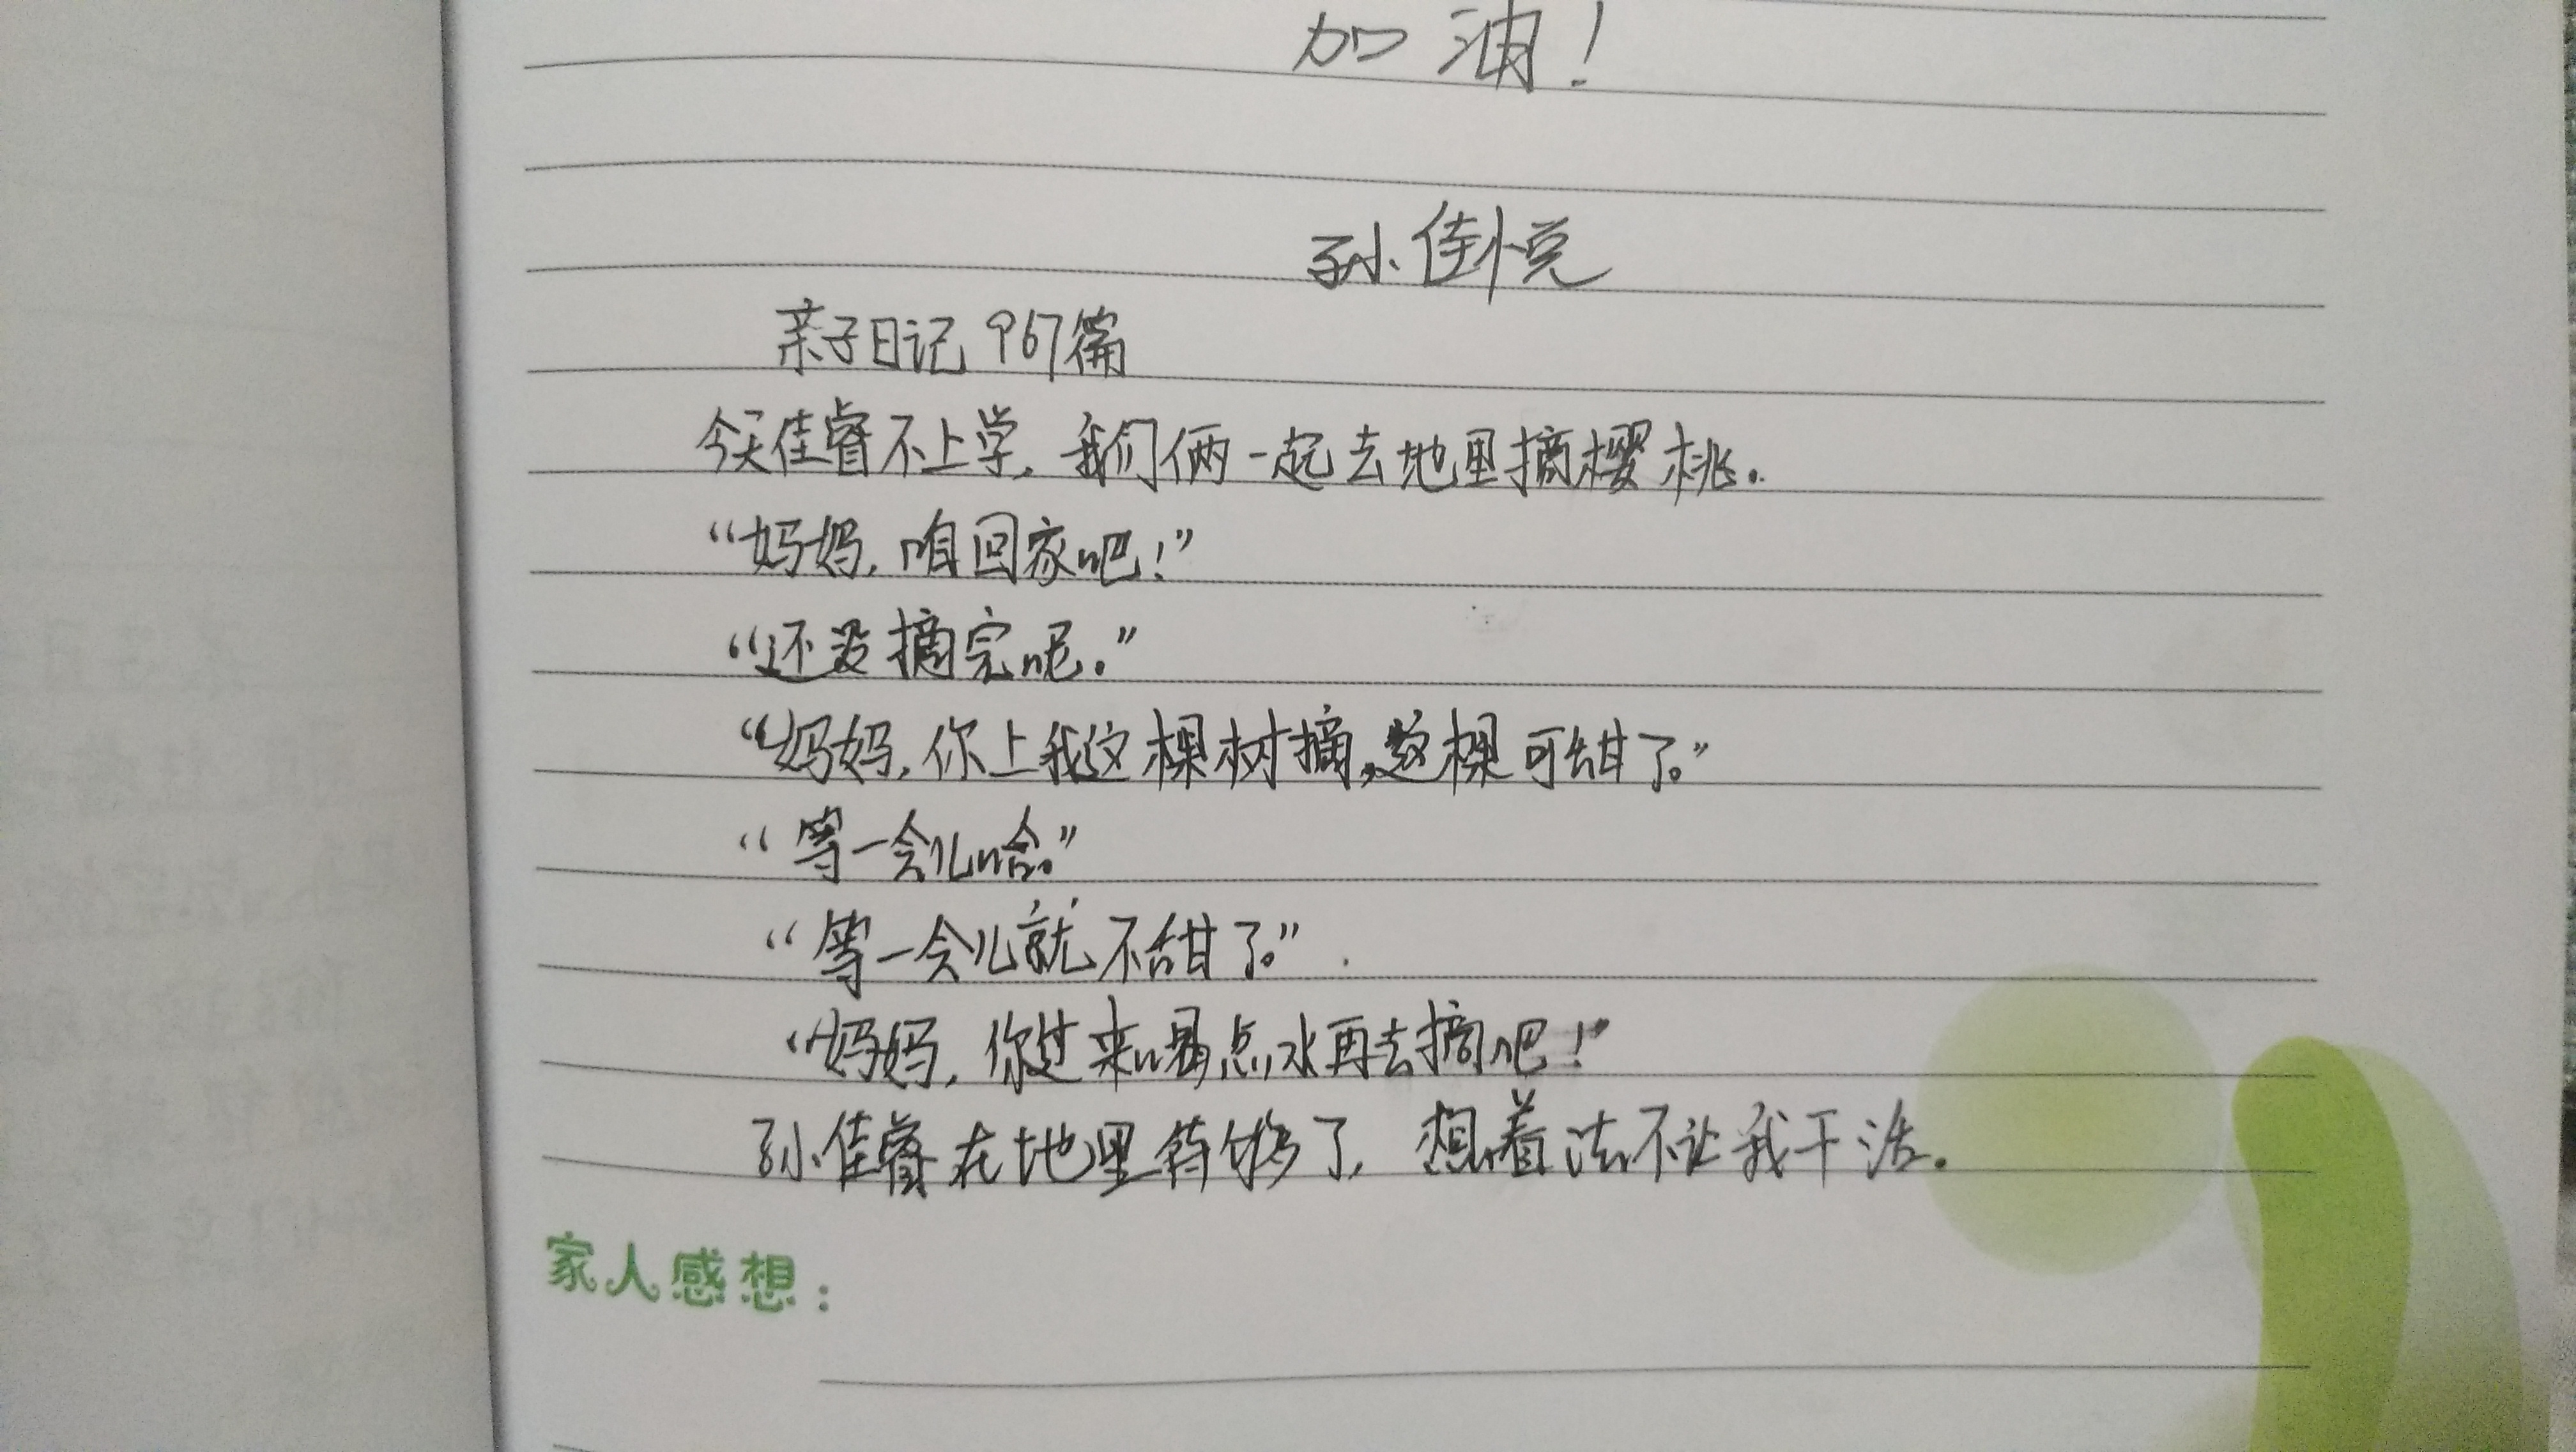 加油！
孙佳悦
亲子日记967篇
今天佳睿不上学,我们俩一起去地里摘樱桃.
“妈妈,咱回家吧!”
“还没摘完呢.”
“妈妈,你上我这棵树摘,这棵可甜了。”
“等一会儿哈。”
“等一会儿就不甜了。”
“妈妈,你过来喝点水再去摘吧!”
孙佳睿在地里待够了,想着法不让我干活.
家人感想：